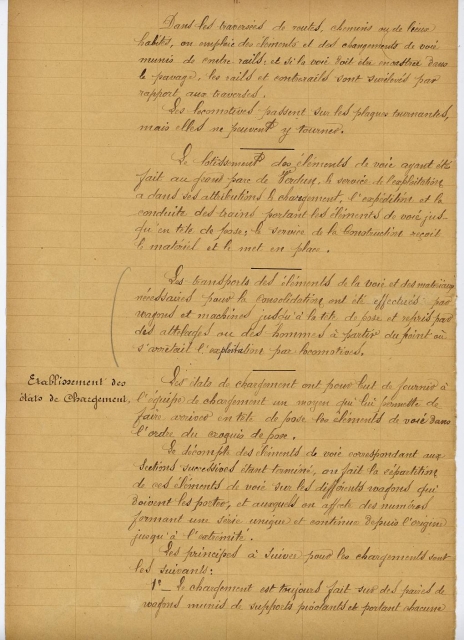 Dans les traversées de routes, chemins ou de lieux
habités, on emploie des éléments et des changements de voie
munis de contre rails; et si la voie doit être encastrée dans
le pavage, les rails et contrerails sont surélevés par
rapport aux traverses.
Les locomotives passent sur les plaques tournantes,
mais elles ne peuvent y tourner.
Le lotissement des éléments de voie ayant été
fait au grand parc de Verdun, le service de l'exploitation
a dans ses attributions le chargement, l'expédition et la
conduite des trains portant les éléments de voie jus-
qu'en tête de pose; le service de la Construction reçoit
le matériel et le met en place.
Les transports des éléments de la voie et des matériaux
nécessaires pour la consolidation ont été effectués par
wagons et machines jusqu'à la tête de pose et repris par
des attelages ou des hommes à partir du point où
s'arrêtait l'exploitation par locomotives.
Etablissement des
états de Chargement.
Les états de chargement ont pour but de fournir à
l'équipe de chargement un moyen qui lui permette de
faire arriver en tête de pose les éléments de voie dans
l'ordre du croquis de pose.
Le décompte des éléments de voie correspondant aux
Sections successives étant terminé, on fait la répartition
de ces éléments de voie sur les différents wagons qui
doivent les porter, et auxquels on affecte des numéros
formant une série unique et continue depuis l'origine
jusqu'à l'extrémité.
Les principes à suivre pour les chargements sont
les suivants:
1º_ Le chargement est toujours fait sur des paires de
wagons munis de supports pivotants et portant chacune